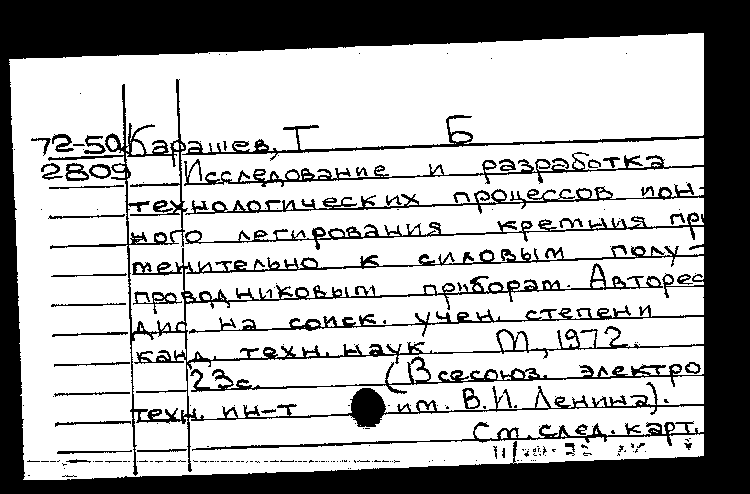 72-50 Карашев, Т Б
2809 Исследование и разработка
технологических процессов ион-
ного легирования кремния при
менительно к силовым полу-
проводниковым приборам. Авторес
дис. на соиск. учен. степени
канд. техн. наук. М., 1972.
23с. (Всесоюз. электро
техн. ин-т им. В.И. Ленина).
См. след. карт.